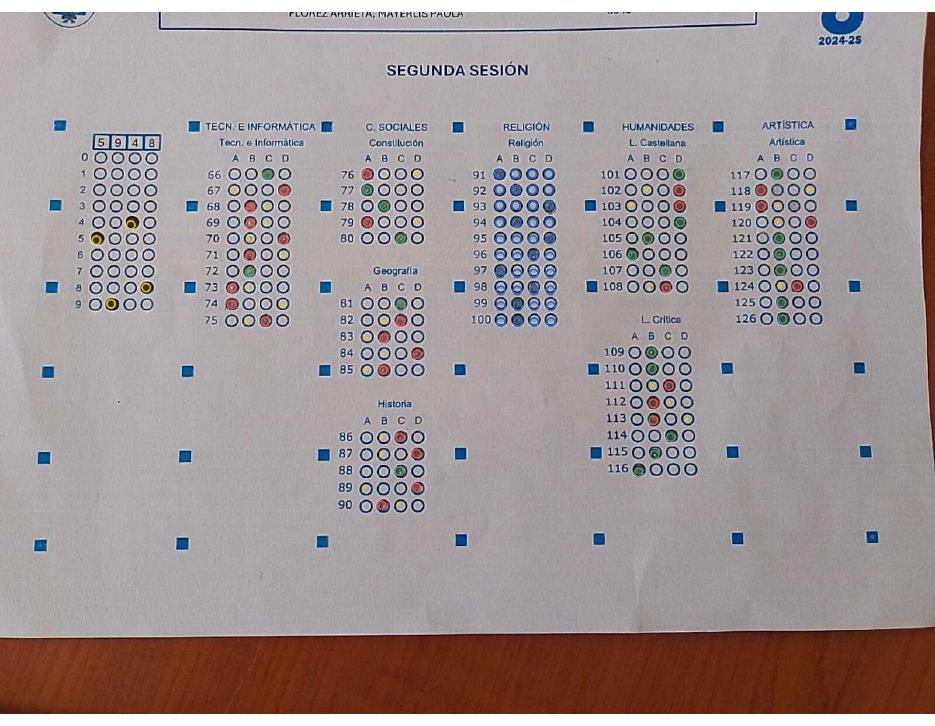 FLOREZ ARRIETA, MAYERLIS PAULA
2024-25
SEGUNDA SESIÓN
5 9 4 8
0
1
2
3
4
5
6
7
8
9
TECN. E INFORMÁTICA
Tecn. e Informática
A B C D
66
67
68
69
70
71
72
73
74
75
C. SOCIALES
Constitución
A B C D
76
77
78
79
80
Geografía
A B C D
81
82
83
84
85
Historia
A B C D
86
87
88
89
90
RELIGIÓN
Religión
A B C D
91
92
93
94
95
96
97
98
99
100
HUMANIDADES
L. Castellana
A B C D
101
102
103
104
105
106
107
108
L. Crítica
A B C D
109
110
111
112
113
114
115
116
ARTÍSTICA
Artística
A B C D
117
118
119
120
121
122
123
124
125
126